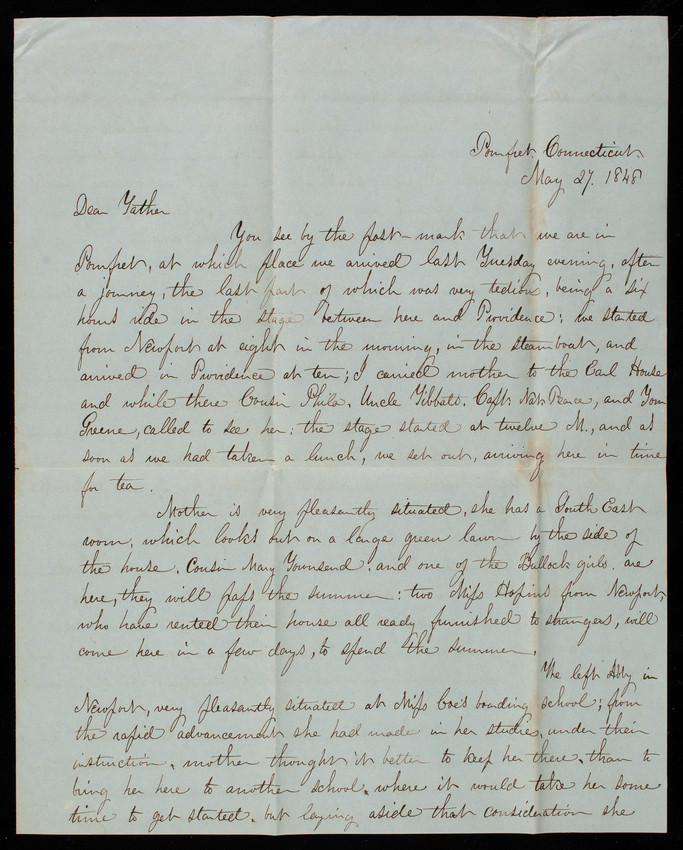 Pomfret Connecticut.
May 27. 1848
Dear Father
You see by the post-mark that we are in
Pomfret, at which place we arrived last Tuesday evening, after
a journey, the last part of which was very tedious, being a six
hours ride in the stage between here and Providence; we started
from Newport at eight in the morning, in the steamboat, and
arrived in Providence at ten; I carried mother to the Earl House
and while there Cousin Phila. Uncle Tibbets. Capt. Nat. Pearce, and Tom
Greene, called to see her: the stage started at twelve M., and as
soon as we had taken a lunch, we set out, arriving here in time
for tea.
Mother is very pleasantly situated, she has a South East
room, which looks out on a large green lawn by the side of
the house. Cousin Mary Townsend. and one of the Bullock girls. are
here, they will pass the summer: two Miss from Newport,
who have rented their house all ready furnished to strangers, will
come here in a few days, to spend the summer.
We left Abby in
Newport, very pleasantly situated at Miss Coe's boarding school; from
the rapid advancement she had made in her studies, under their
instruction, mother thought it better to keep her there, than to
bring her here to another school, where it would take her some
time to get started. but laying aside that consideration she